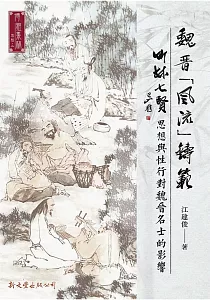 魏晉「風流」鑄範
竹林七賢
思想與性行對魏晉名士的影響
江建俊 著
新文豐出版公司